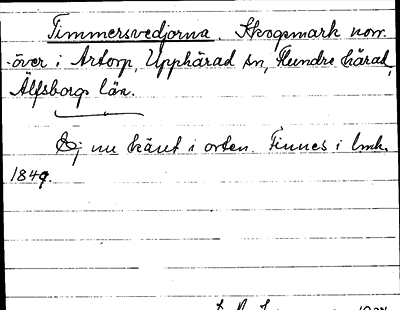 Timmersvedjorna. Skogsmark norr
över i Artorp, Upphärad sn, Flundre härad,
Älfsborgs län.
Ej nu känt i orten. Finnes i lmh.
1849.